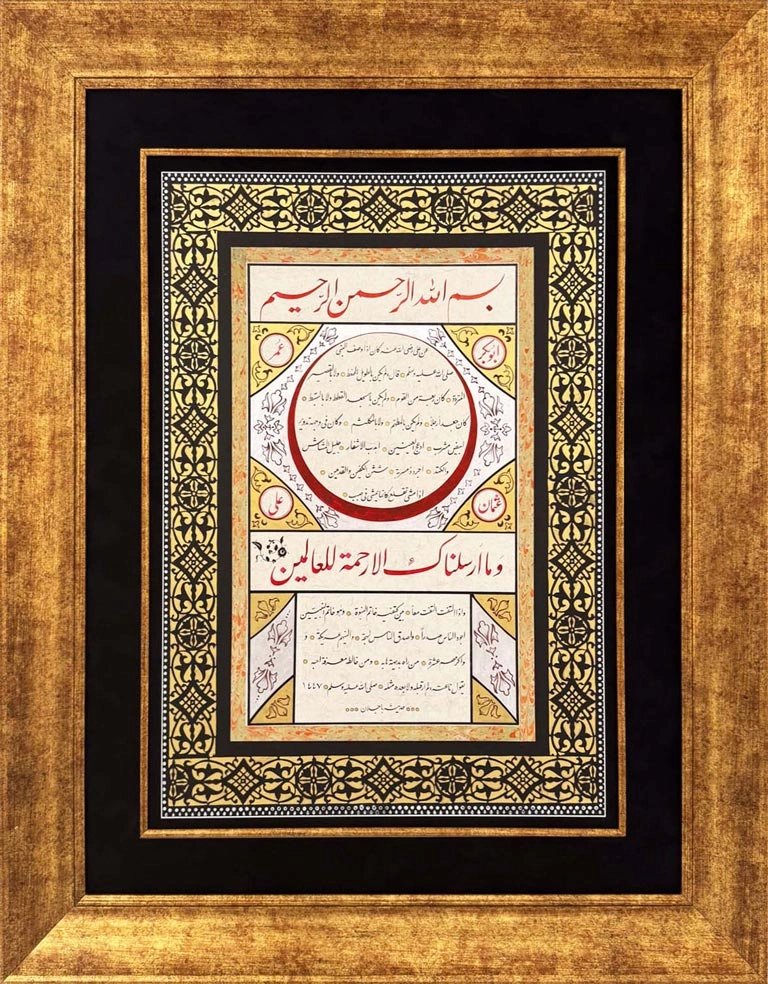 بسم الله الرحمن الرحيم
ابوبكر
عمر
عن علي رضي الله عنه كان اذا وصف النبي
صلى الله عليه وسلم قال لم يكن بالطويل الممغط ولا بالقصير
المتردد كان ربعة من القوم ولم يكن بالجعد القطط ولا بالسبط
كان جعدا رجلا ولم يكن بالمطهم ولا بالمكلثم وكان في وجهه تدوير
ابيض مشرب ادعج العينين اهدب الاشفار جليل المشاش
والكتد اجرد ذو مسربة شثن الكفين والقدمين
اذا مشى تقلع كانما يمشي في صبب
عثمان
علي
وما ارسلناك الا رحمة للعالمين
واذا التفت التفت معا بين كتفيه خاتم النبوة وهو خاتم النبيين
اجود الناس صدرا واصدق الناس لهجة والينهم عريكة و
واكرمهم عشرة من رآه بديهة هابه ومن خالطه معرفة احبه
يقول ناعته لم ار قبله ولا بعده مثله صلى الله عليه وسلم ١٤٤٧